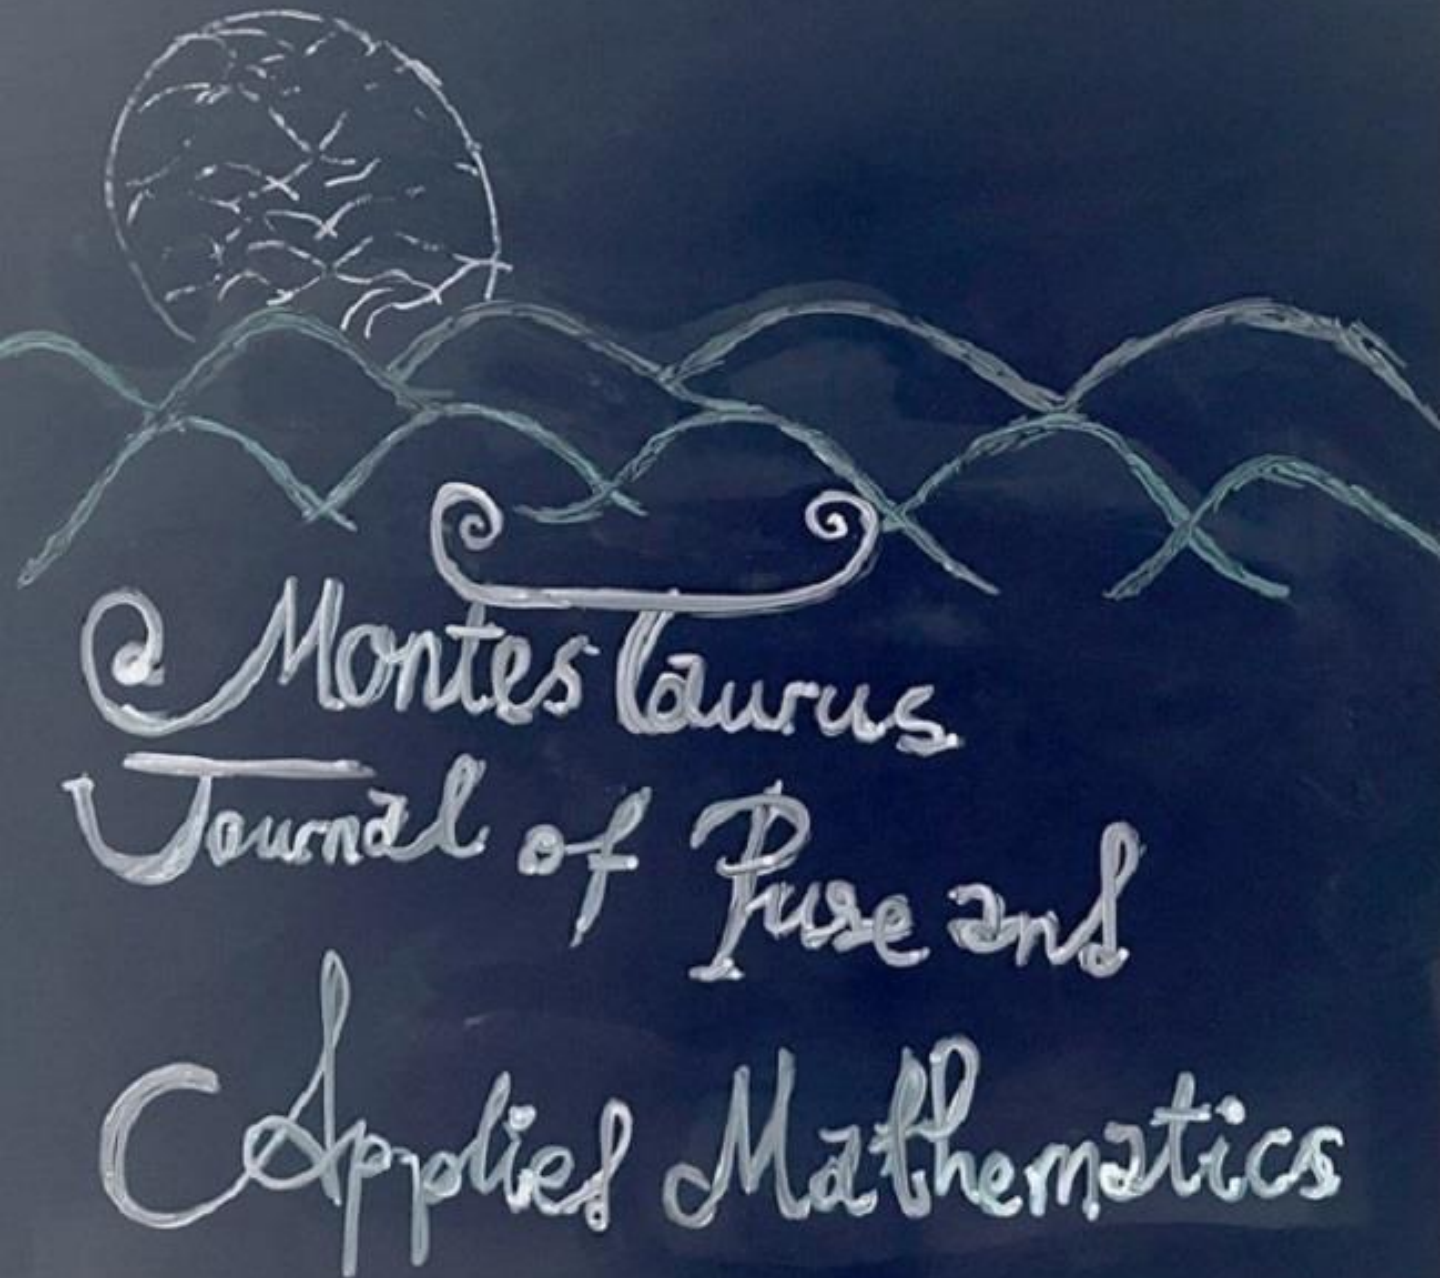 Montes Taurus
Journal of Pure and
Applied Mathematics